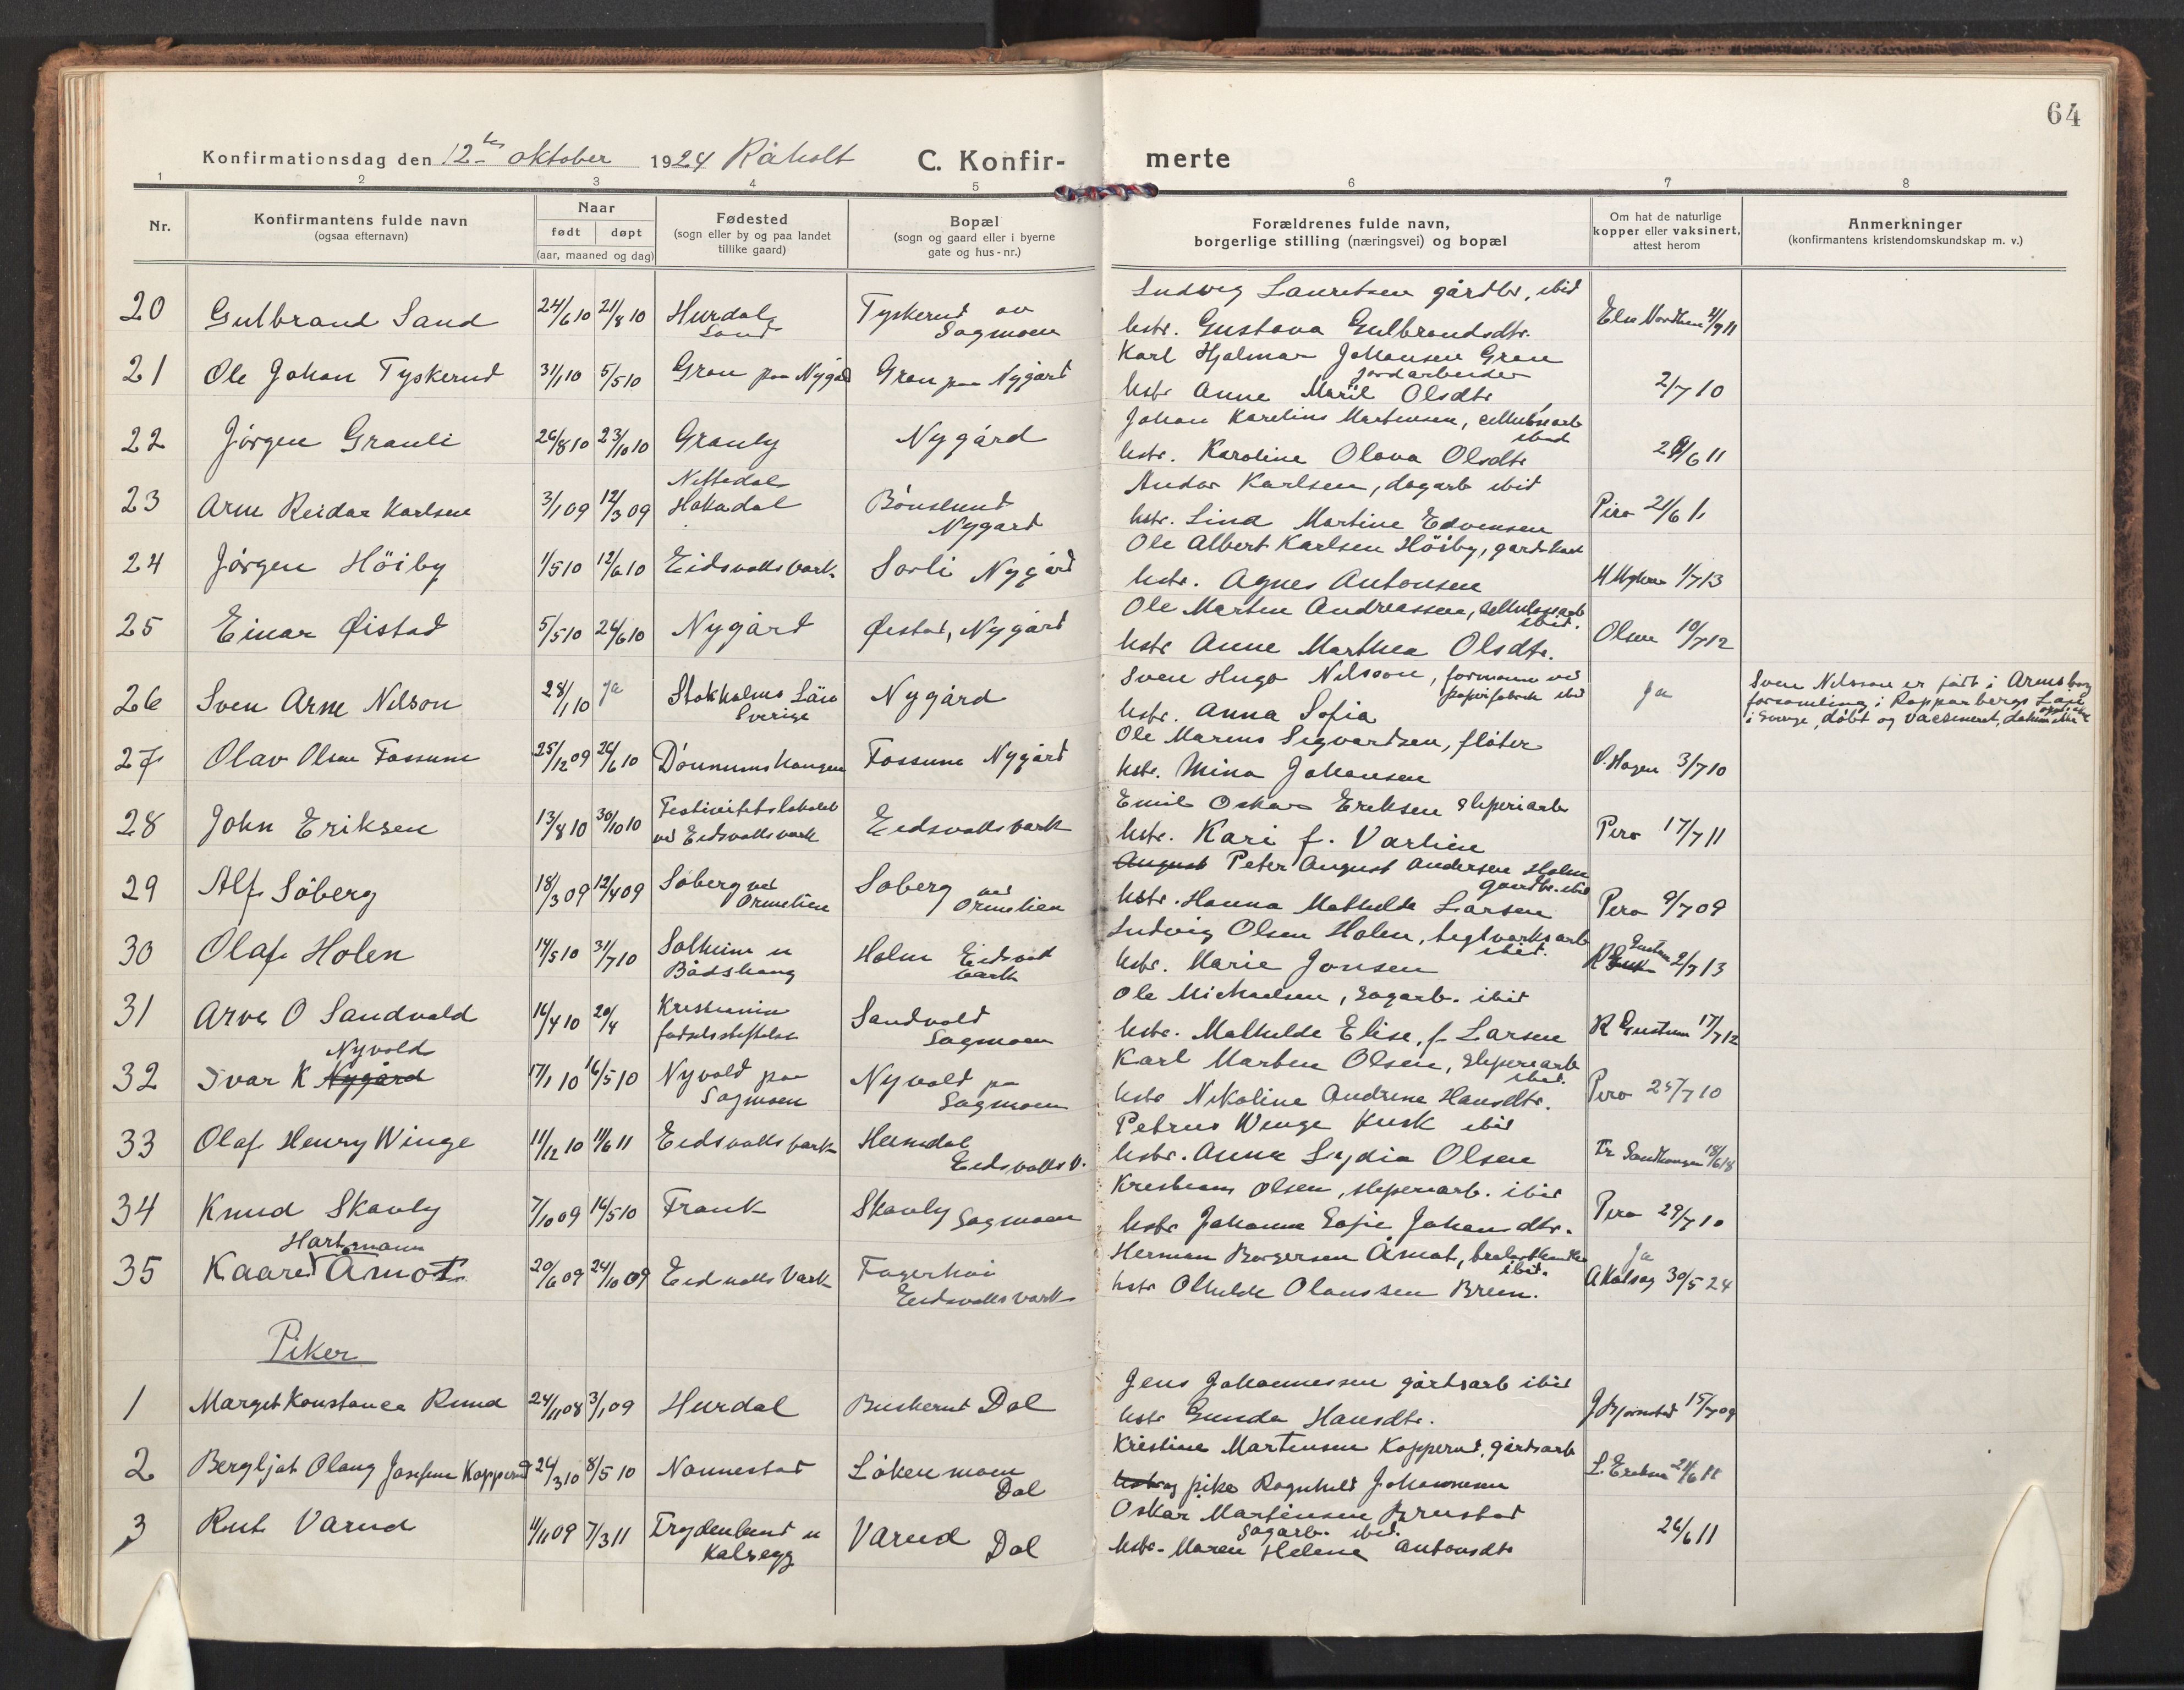 64
Konfirmationsdag den 12te oktober 1924 Råholt C. Konfir- merte
1 2 3 4 5 6 7 8
Nr. Konfirmantens fulde navn (ogsaa efternavn) Naar født døpt (aar, maaned og dag) Fødested (sogn eller by og paa landet tillike gaard) Bopæl (sogn og gaard eller i byerne gate og hus-nr.) Forældrenes fulde navn, borgerlige stilling (næringsvei) og bopæl Om hat de naturlige kopper eller vaksinert, attest herom Anmerkninger (konfirmantens kristendomskundskap m. v.)
Ludvig Lauritsen gårdbr, ibid
20 Gulbrand Sand 24/6 10 21/8 10 Hurdal Sand Tyskerud av Sagmoen hstr. Gustava Gulbrandsdtr. 4/9 11
Karl Hjalmar Johansen Gran jordarbeider
21 Ole Johan Tyskerud 31/1 10 5/5 10 Gran paa Nygård Gran paa Nygård hstr Anne Maril Olsdtr 2/7 10
Johan Karelius Martinsen, cellulosearb ibid
22 Jörgen Granli 26/8 10 23/10 10 Granly Nygård hstr. Karoline Olava Olsdtr /6 11
Andor Karlsen, dagarb ibid
23 Arne Reidar Karlsen 3/1 09 12/3 09 Nittedal Hakadal Bönslund Nygård hstr. Lina Martine Edvensen 21/6 11
Ole Albert Karlsen Höiby, gårdskar
24 Jörgen Höiby 1/5 10 12/6 10 Eidsvolls værk Sorli Nygård hstr. Agnes Antonsen 1/7 13
Ole Martin Andreassen, cellulosearb ibid.
25 Einar Øistad 5/5 10 26/6 10 Nygård Øistad, Nygård hstr Anne Marthea Olsdtr. Olsen 10/7 12
Sven Hugo Nilsson, formann ved papirfabrik ibid
26 Sven Arne Nilson 28/1 10 Ja Stokholms Län Sverige Nygård hstr. Anna Sofia Ja Sven Nilsson er født i Arnsborg forsamling i Kopparbergs Län i Sverige, döbt og vacsineret, datum ikke opgitt
Ole Marius Sigvartsen, flöter
27 Olav Olsen Fossum 25/12 09 26/6 10 Dönnumshaugen Fossum Nygård hstr. Mina Johansen O. Hagen 3/7 10
Emil Oskar Eriksen sliperiarb
28 John Eriksen 13/8 10 30/10 10 Festivitetslokalet ved Eidsvolls værk Eidsvolls værk hstr. Kari f. Varlien 17/7 11
August Peter August Andersen Holm gaardbr. ibid
29 Alf Söberg 18/3 09 12/4 09 Söberg ved Ormlien Söberg ved Ormlien hstr. Hanna Mathilde Larsen 9/7 09
Ludvig Olsen Holen, teglværksarb ibid.
30 Olaf Holen 14/5 10 31/7 10 Solheim u Bådshaug Holm Eidsvold værk hstr. Marie Jonsen 2/7 13
Ole Michaelsen, sagarb. ibid
31 Arve O Sandvold 16/4 10 20/4 Kristiania fødselsstiftelse Sandvold Sagmoen hstr. Mathilde Elise, f Larsen 17/7 12
Karl Martin Olsen, sliperiarb ibid.
32 Ivar K Nygård Nyvold 17/1 10 16/5 10 Nyvold paa Sagmoen Nyvold pa Sagmoen hstr Nikoline Andrine Hansdtr. 25/7 10
Petrus Winge kusk ibid
33 Olaf Henry Winge 11/12 10 11/6 11 Eidsvolls værk Heimdal Eidsvolls v. hstr. Anna Lydia Olsen 18/6 18
Kristians Olsen, sliperiarb. ibid
34 Knud Skauly 7/10 09 16/5 10 Frank Skauly Sagmoen hstr Johanne Sofie Johansdtr. 29/7 10
Herman Borgersen Åmot, ibid.
35 Kaare Hartmann Åmot 20/6 09 24/10 09 Eidsvolls Værk Fagerhøi Eidsvolls værk hstr Othilde Olaussen Breen. Ja 30/5 24
Piker
Jens Johannessen gårdsarb ibid
1 Margit Konstanca Ruud 24/11 08 3/1 09 Hurdal Buskerud Dal hstr Gunda Hansdtr. 15/7 09
Kristine Martinsen Kopperud, gårdsarb
2 Bergljot Olaug Josefine Kopperud 24/3 10 8/5 10 Nannestad Löken moen Dal hstr og pike Ragnhild Johannesen 21/6 11
Oskar Martinsen Brustad sagarb. ibid.
3 Rut Varud 4/11 09 7/3 11 Frydenlund u Kalsegg Varud Dal hstr. Maren Helene Antonsdtr 26/6 11